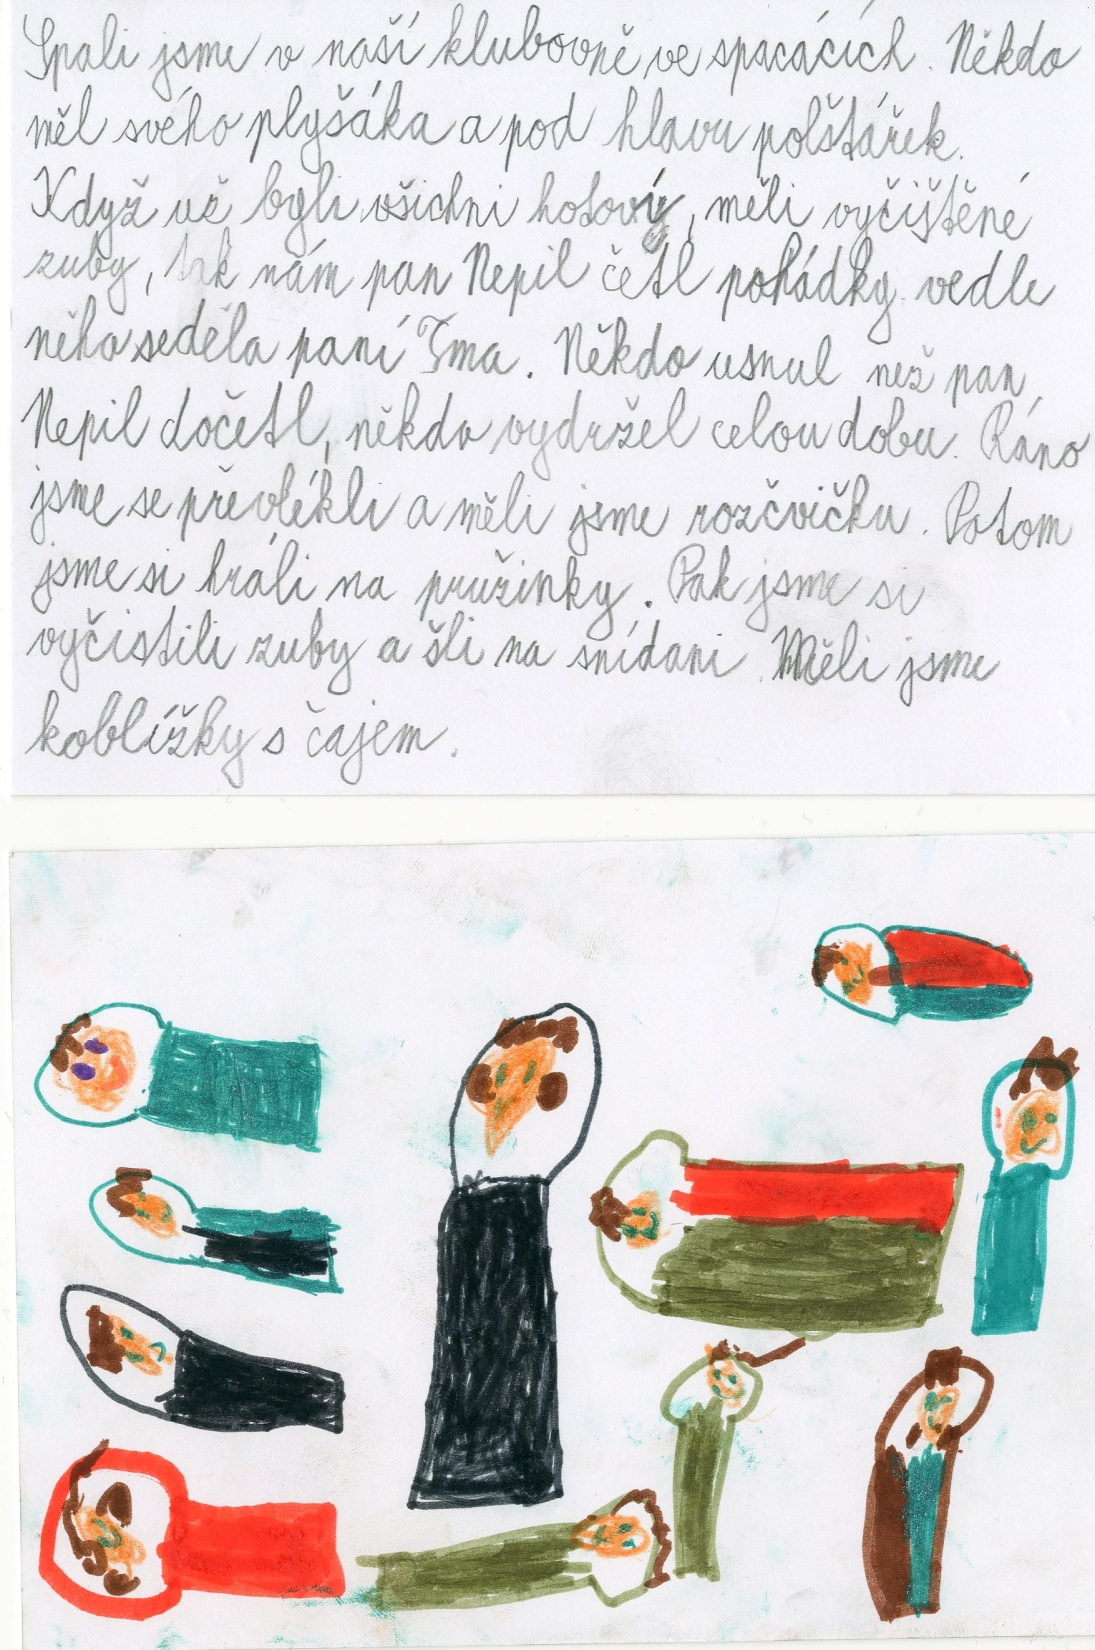 Spali jsme v naší klubovně ve spacácích. Někdo
měl svého plyšáka a pod hlavu polštářek.
Když už byli všichni hotový, měli vyčištěné
zuby, tak nám pan Nepil četl pohádky. vedle
něho seděla paní Tma. Někdo usnul než pan
Nepil dočetl, někdo vydržel celou dobu. Ráno
jsme se převlékli a měli jsme rozčvičku. Potom
jsme si hráli na pružinky. Pak jsme si
vyčistili zuby a šli na snídani. Měli jsme
koblížky s čajem.